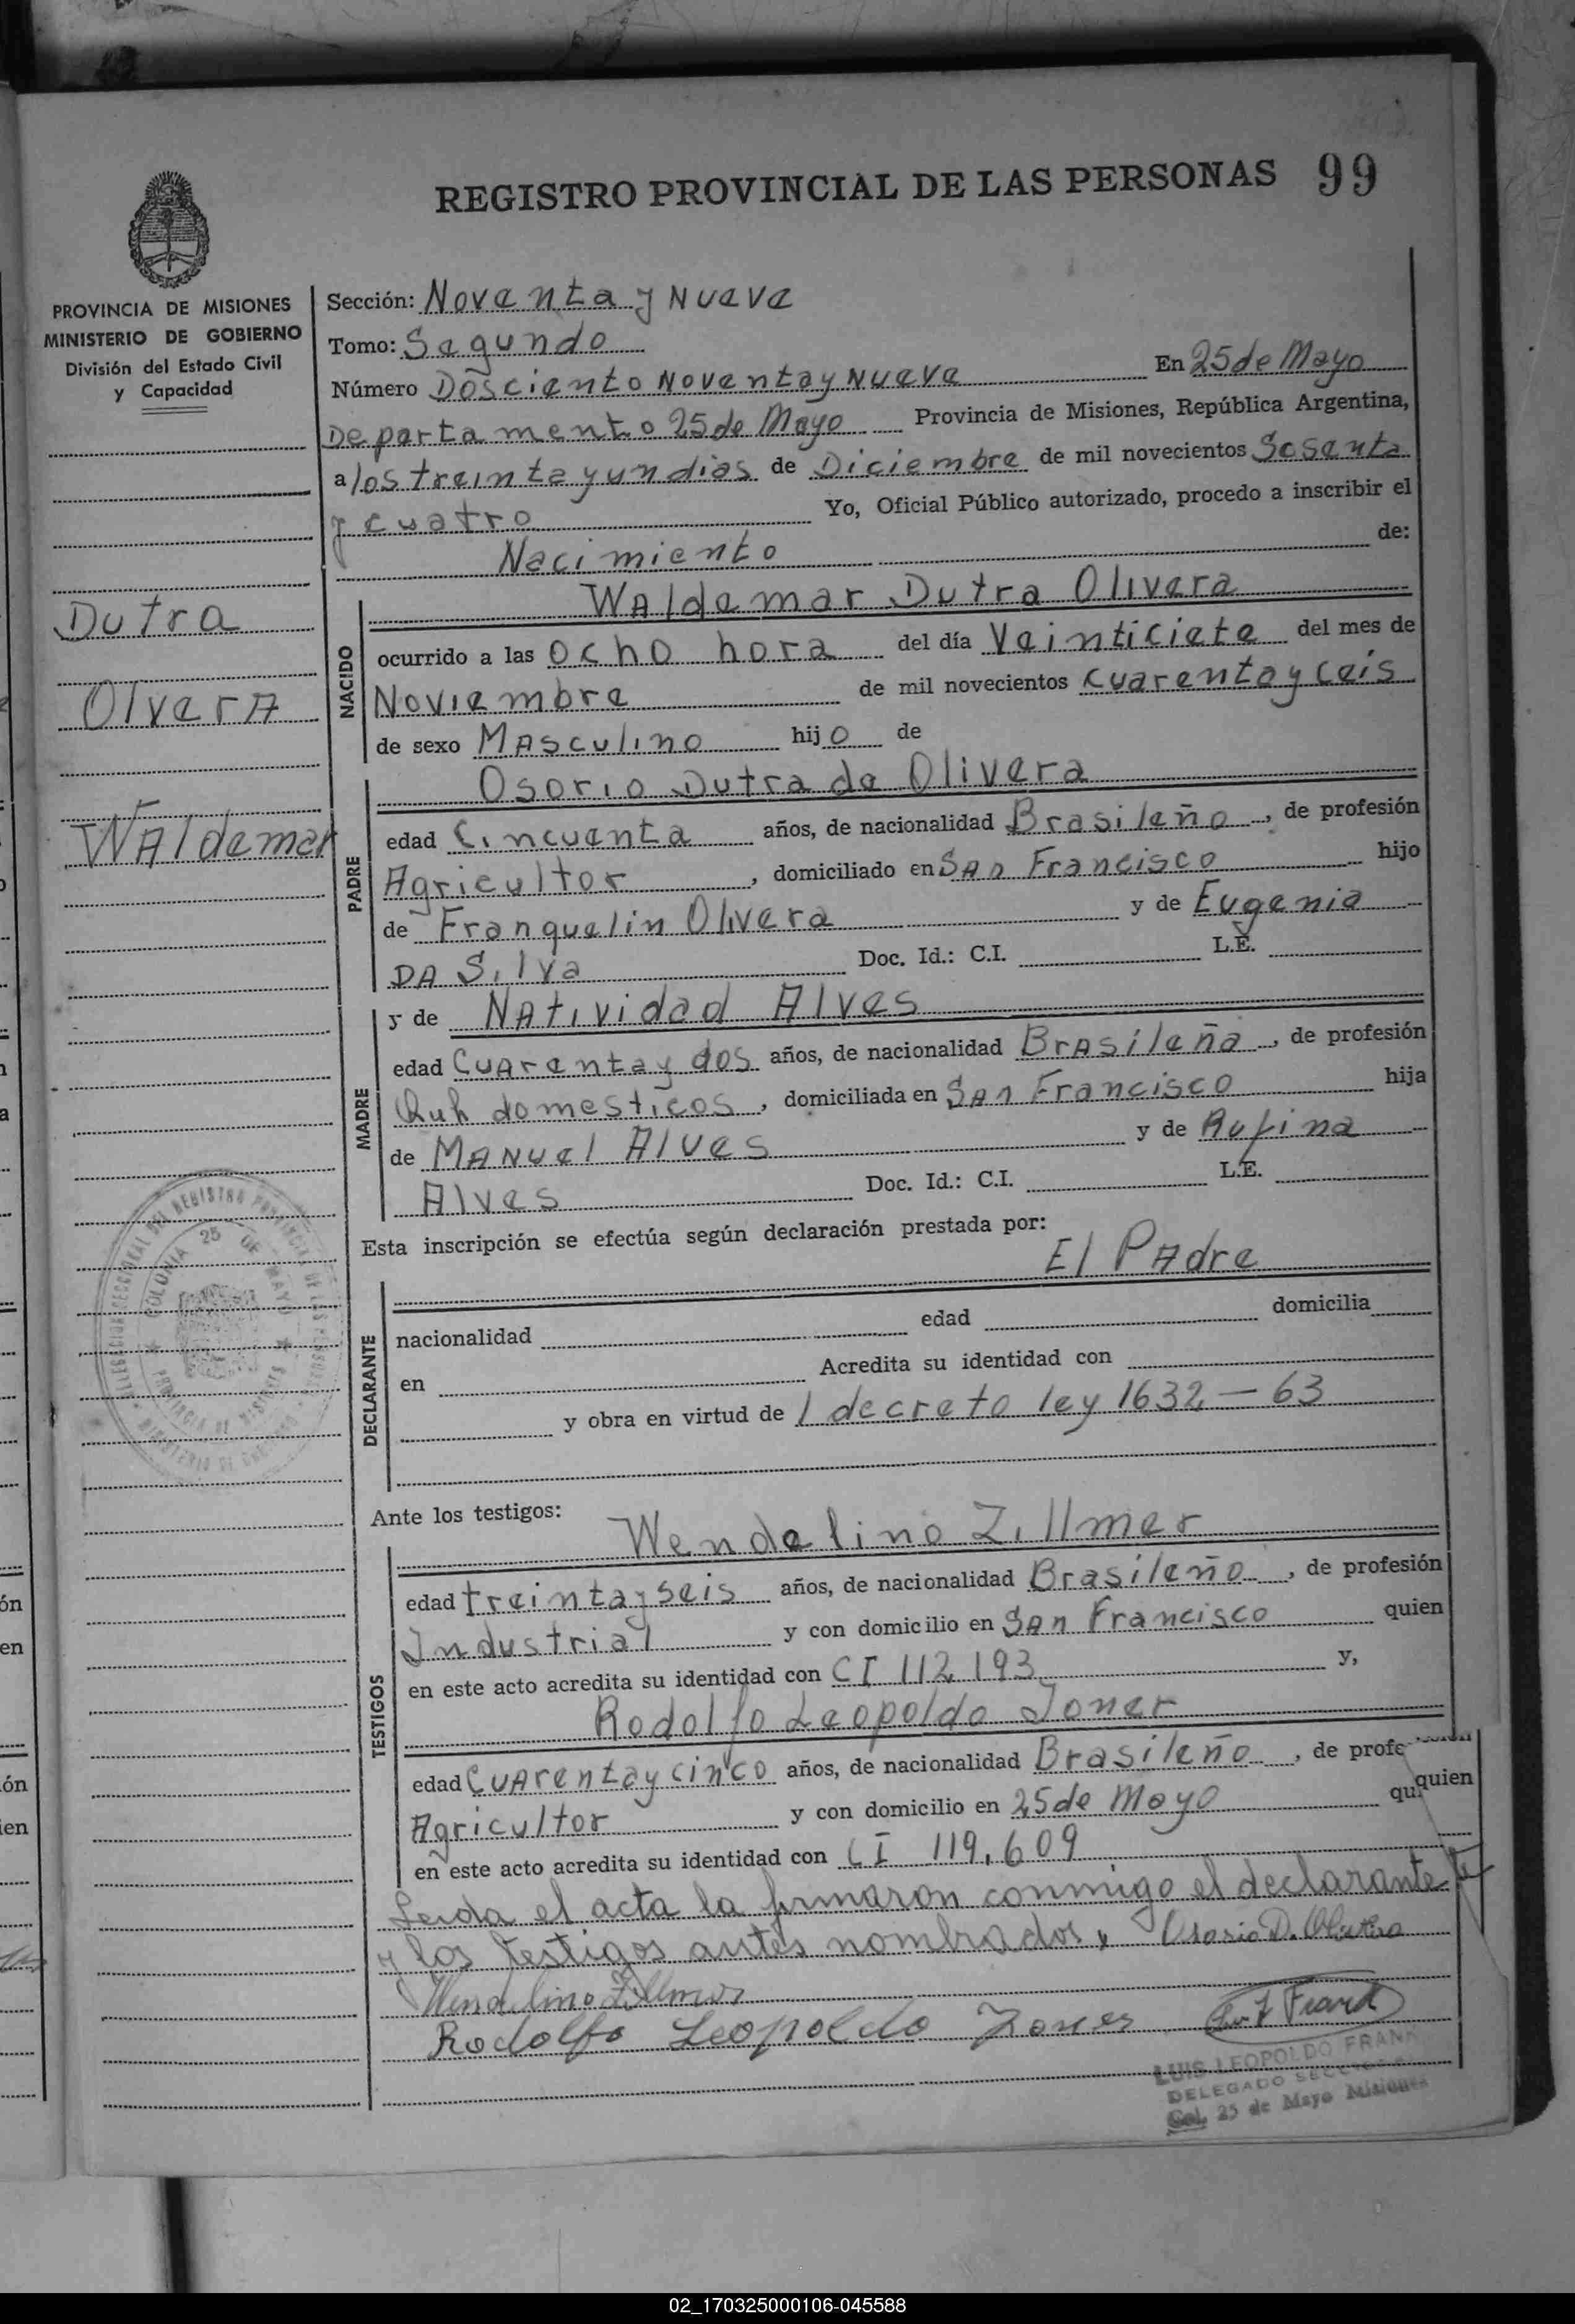 REGISTRO PROVINCIAL DE LAS PERSONAS 99
PROVINCIA DE MISIONES
MINISTERIO DE GOBIERNO
División del Estado Civil
y Capacidad
Dutra
OlverA
WAldemar
Sección: Noventa y Nueve
Tomo: Segundo
Número Dosciento Noventa y Nueve En 25 de Mayo
Departamento 25 de Mayo Provincia de Misiones, República Argentina,
a los treinta y un dias de Diciembre de mil novecientos Sesenta
y cuatro Yo, Oficial Público autorizado, procedo a inscribir el
Nacimiento de:
NACIDO
WAldemar Dutra Olivera
ocurrido a las ocho hora del día Veinticiete del mes de
Noviembre de mil novecientos cuarenta y ceis
de sexo MAsculino hijo de
PADRE
Osorio Dutra de Olivera
edad Cincuenta años, de nacionalidad Brasileño, de profesión
Agricultor, domiciliado en SAn Francisco hijo
de Franquelin Olivera y de Eugenia
DA Silva Doc. Id.: C.I. L.E.
MADRE
y de NAtividad Alves
edad CuArenta y dos años, de nacionalidad BrAsileña, de profesión
Quh domesticos, domiciliada en SAn Francisco hija
de MANuel Alves y de Rufina
Alves Doc. Id.: C.I. L.E.
Esta inscripción se efectúa según declaración prestada por:
El PAdre
DECLARANTE
nacionalidad edad domicilia
en Acredita su identidad con
y obra en virtud de l decreto ley 1632 — 63
Ante los testigos:
TESTIGOS
Wendelino Zillmer
edad treinta y seis años, de nacionalidad Brasileño, de profesión
Industrial y con domicilio en SAn Francisco quien
en este acto acredita su identidad con CI 112193 y,
Rodolfo Leopoldo Joner
edad CuArenta y cinco años, de nacionalidad Brasileño, de profe
Agricultor y con domicilio en 25 de Mayo quien
en este acto acredita su identidad con CI 119.609
Leida el acta la firmaron conmigo el declarante
y los testigos antes nombrados, Osorio D. Olivera
Wendelino Zillmer
Rodolfo Leopoldo Joner
LUIS LEOPOLDO FRANK
DELEGADO
Col. 25 de Mayo Misiones
COLONIA 25 DE MAYO
PROVINCIA DE MISIONES
02_170325000106-045588